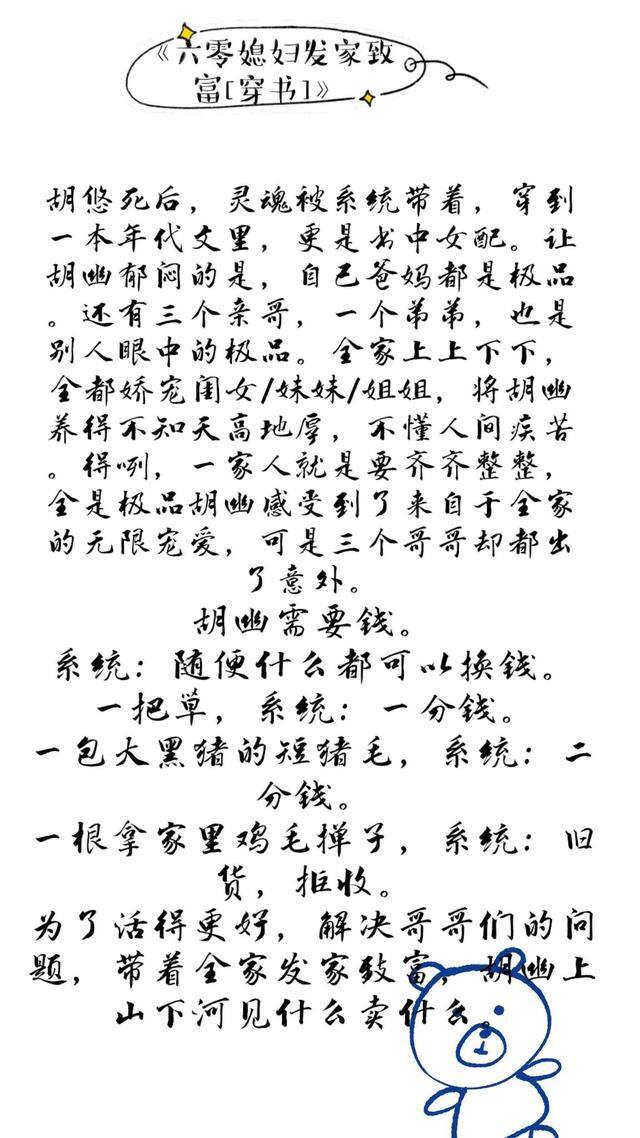 《六零媳妇发家致
富[穿书]》
胡悠死后，灵魂被系统带着，穿到
一本年代文里，更是书中女配。让
胡幽郁闷的是，自己爸妈都是极品
。还有三个亲哥，一个弟弟，也是
别人眼中的极品。全家上上下下，
全都娇宠闺女/妹妹/姐姐，将胡幽
养得不知天高地厚，不懂人间疾苦
。得咧，一家人就是要齐齐整整，
全是极品胡幽感受到了来自于全家
的无限宠爱，可是三个哥哥却都出
了意外。
胡幽需要钱。
系统：随便什么都可以换钱。
一把草，系统：一分钱。
一包大黑猪的短猪毛，系统：二
分钱。
一根拿家里鸡毛掸子，系统：旧
货，拒收。
为了活得更好，解决哥哥们的问
题，带着全家发家致富，胡幽上
山下河见什么卖什么。